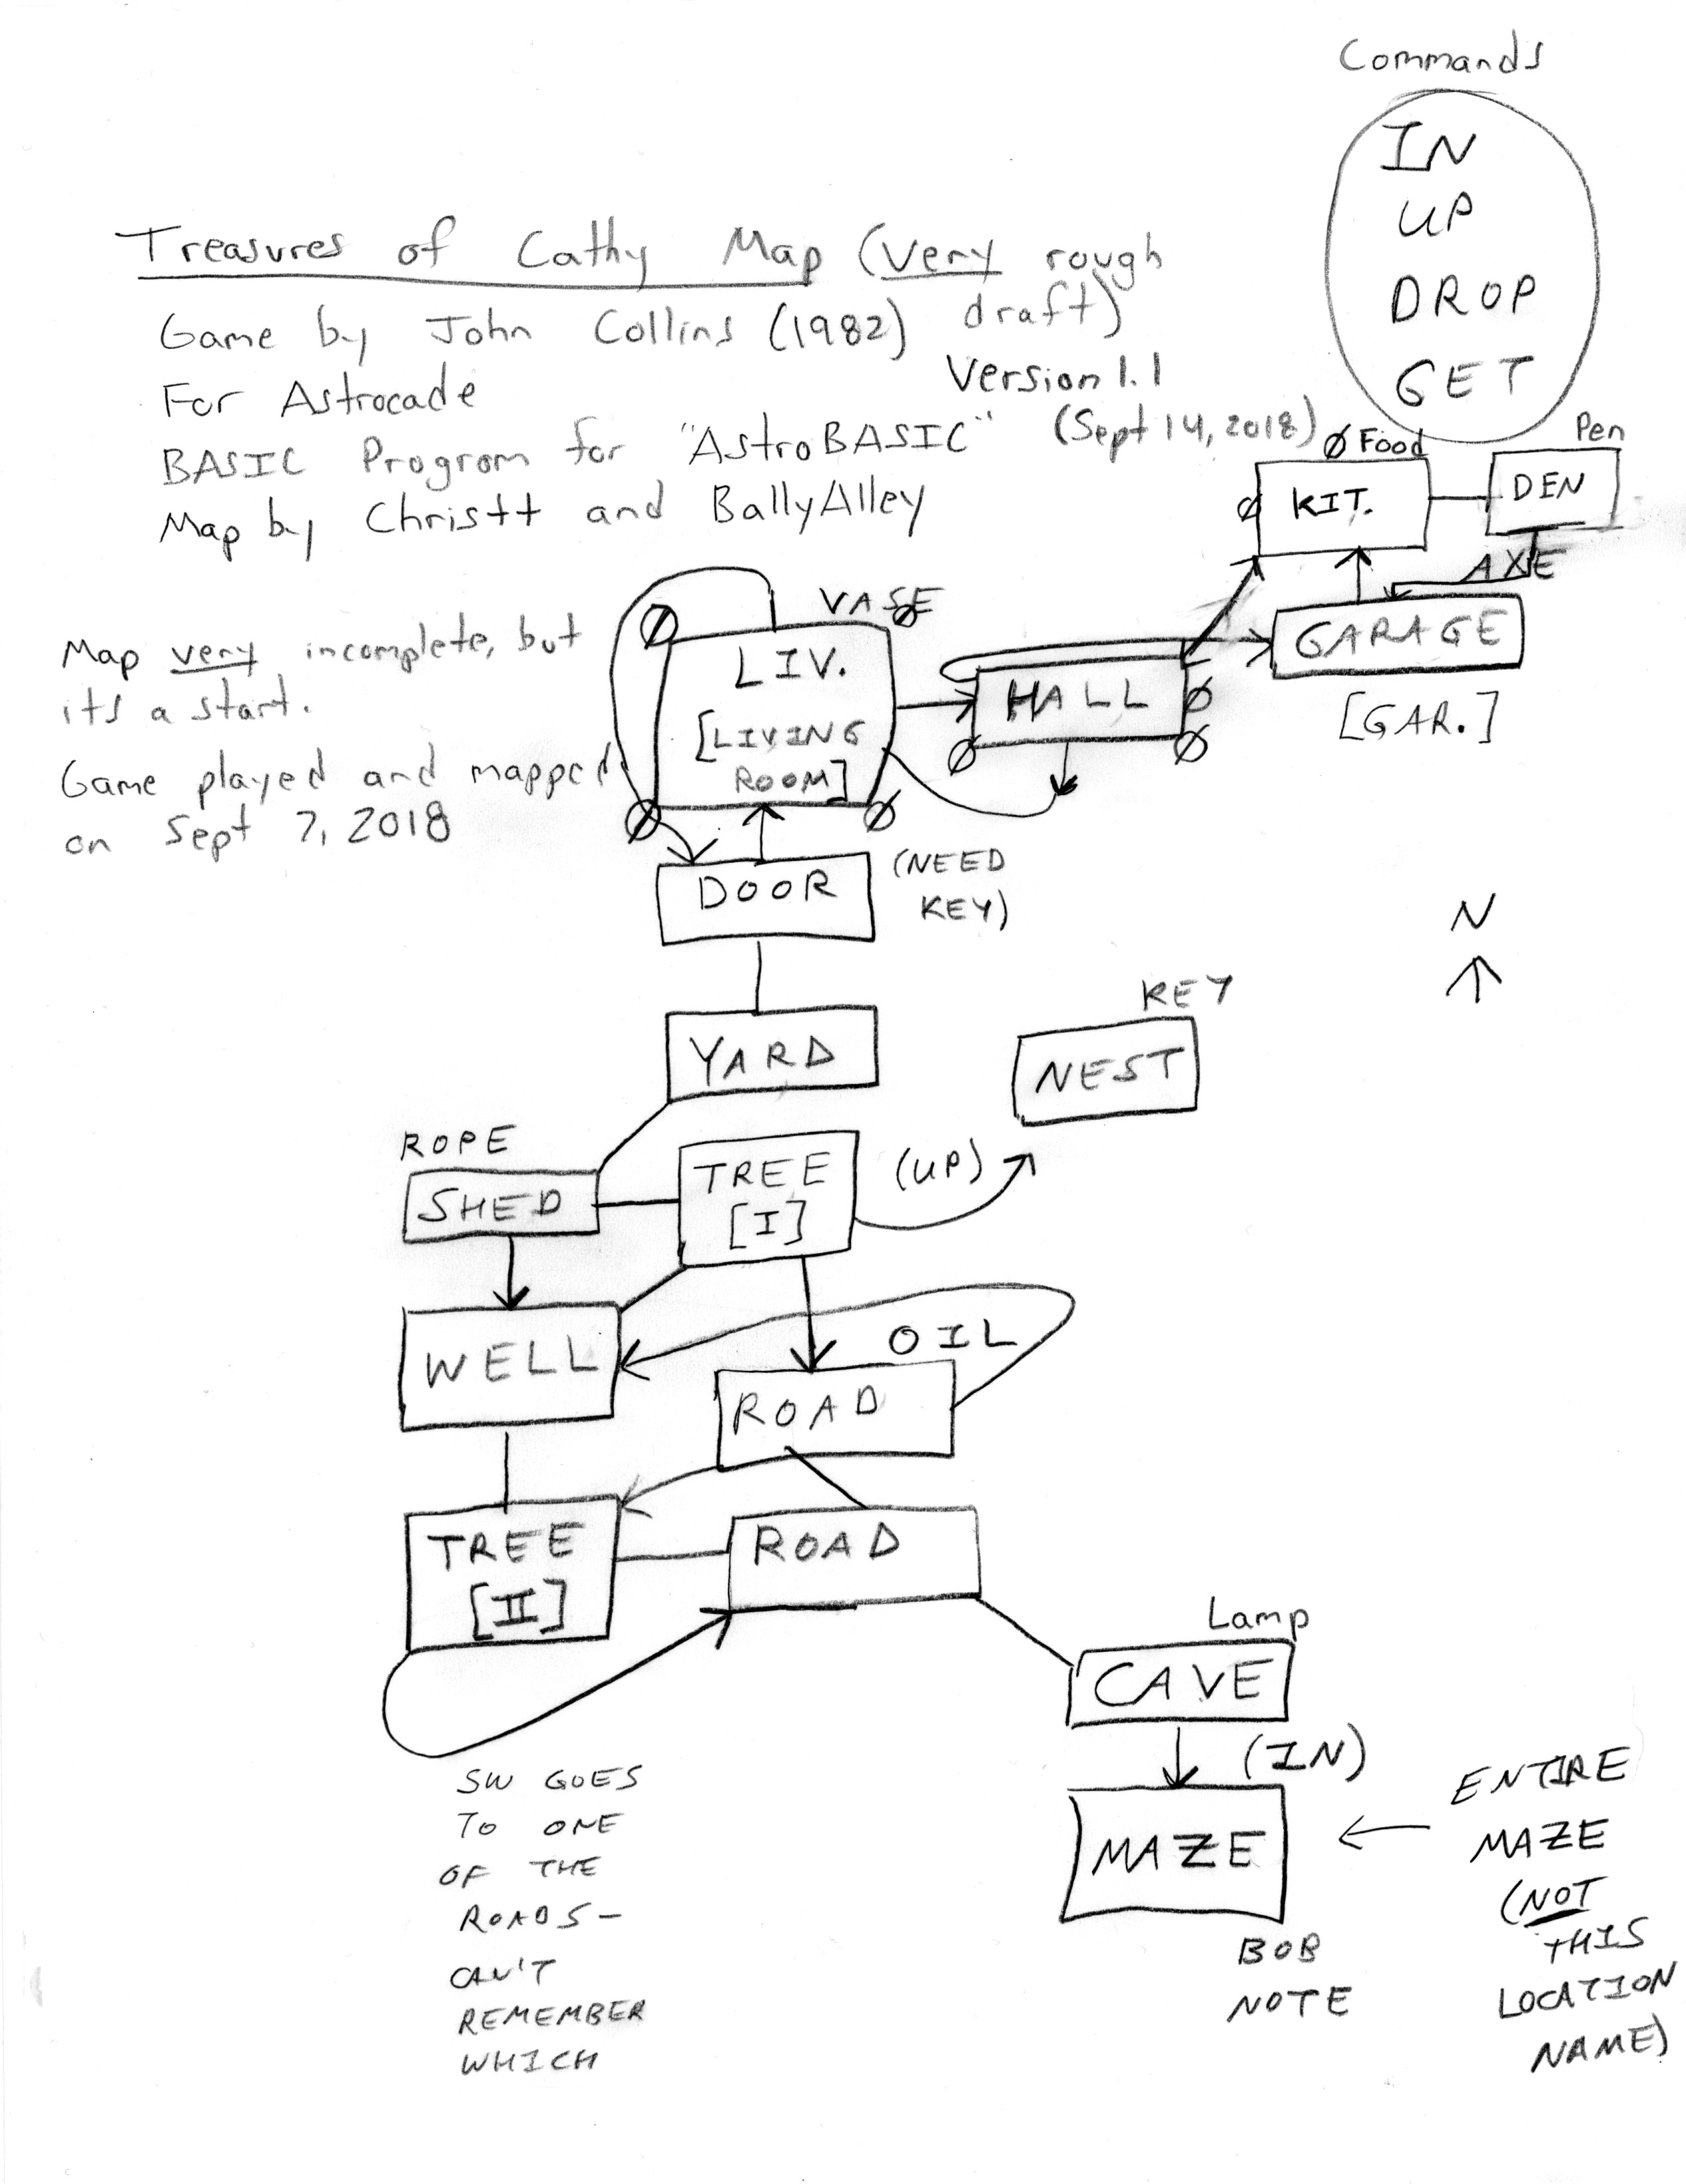 Commands
IN
UP
DROP
GET
Treasures of Cathy Map (very rough
draft)
Game by John Collins (1982)
Version 1.1
For Astrocade
(Sept 14, 2018)
BASIC Program for "AstroBASIC"
Map by Christt and BallyAlley
Ø Food
Pen
Ø
KIT.
DEN
AXE
GARAGE
[GAR.]
Map very incomplete, but
its a start.
Game played and mapped
on Sept 7, 2018
VASE
Ø
Ø
LIV.
[LIVING
ROOM]
Ø
Ø
HALL
Ø
Ø
Ø
DOOR
(NEED
KEY)
N
YARD
KEY
NEST
ROPE
SHED
TREE
[I]
(UP)
WELL
OIL
ROAD
TREE
[II]
ROAD
Lamp
CAVE
(IN)
MAZE
BOB
NOTE
ENTIRE
MAZE
(NOT
THIS
LOCATION
NAME)
SW GOES
TO ONE
OF THE
ROADS—
CAN'T
REMEMBER
WHICH